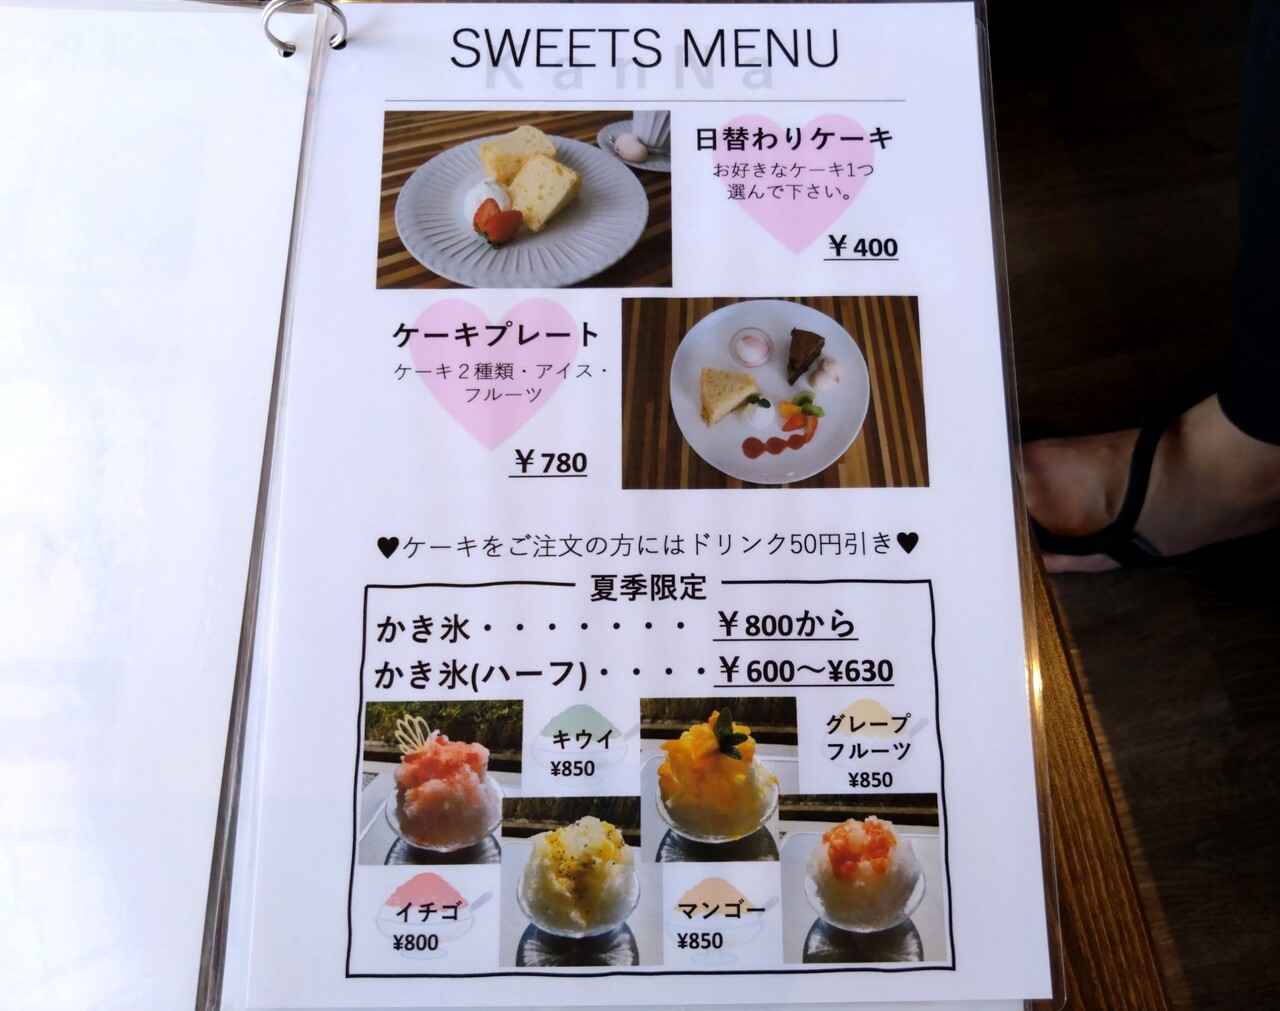 SWEETS MENU
KanNa
日替わりケーキ
お好きなケーキ1つ
選んで下さい。
￥400
ケーキプレート
ケーキ２種類・アイス・
フルーツ
￥780
♥ケーキをご注文の方にはドリンク50円引き♥
夏季限定
かき氷・・・・・・・￥800から
かき氷(ハーフ)・・・・￥600～¥630
キウイ
¥850
グレープ
フルーツ
¥850
イチゴ
¥800
マンゴー
¥850